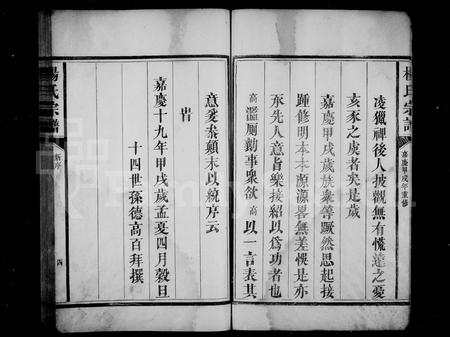 楊氏宗譜
嘉慶甲戌年重修
凌獵神後人披觀無有慌遠之憂
亥豕之虞者矣是歲
嘉慶甲戌歲族衆等蹶然思起接
踵修明本本源源畧無差慌是亦
承先人意旨樂接紹以爲功者也
高濫厠勷事衆欲高以一言表其
意爰叅顛末以統序云
旹
嘉慶十九年甲戌歲孟夏四月穀旦
十四世孫德高百拜撰
楊氏宗譜
新序
四